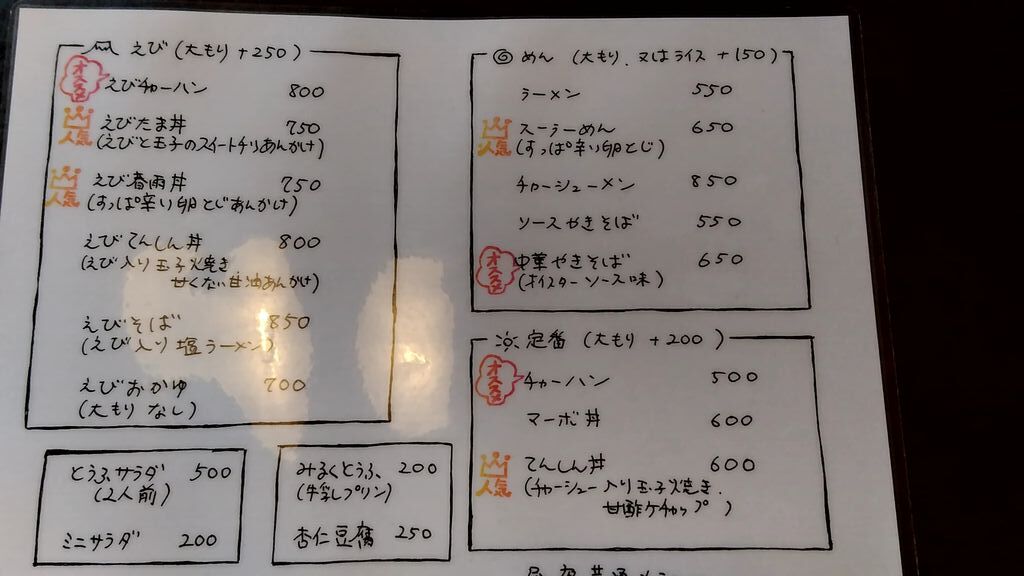 えび (大もり +250)
オススメ
えびチャーハン 800
人気
えびたま丼 750
(えびと玉子のスイートチリあんかけ)
人気
えび春雨丼 750
(すっぱ辛い卵とじあんかけ)
えびてんしん丼 800
(えび入り玉子焼き
甘くない甘油あんかけ)
えびそば 850
(えび入り塩ラーメン)
えびおかゆ 700
(大もりなし)
とうふサラダ 500
(2人前)
ミニサラダ 200
みるくとうふ 200
(牛乳プリン)
杏仁豆腐 250
めん (大もり、又はライス +150)
ラーメン 550
人気
スーラーめん 650
(すっぱ辛い卵とじ)
チャーシューメン 850
ソースやきそば 550
オススメ
中華やきそば 650
(オイスターソース味)
定番 (大もり +200)
オススメ
チャーハン 500
マーボ丼 600
人気
てんしん丼 600
(チャーシュー入り玉子焼き、
甘酢ケチャップ)